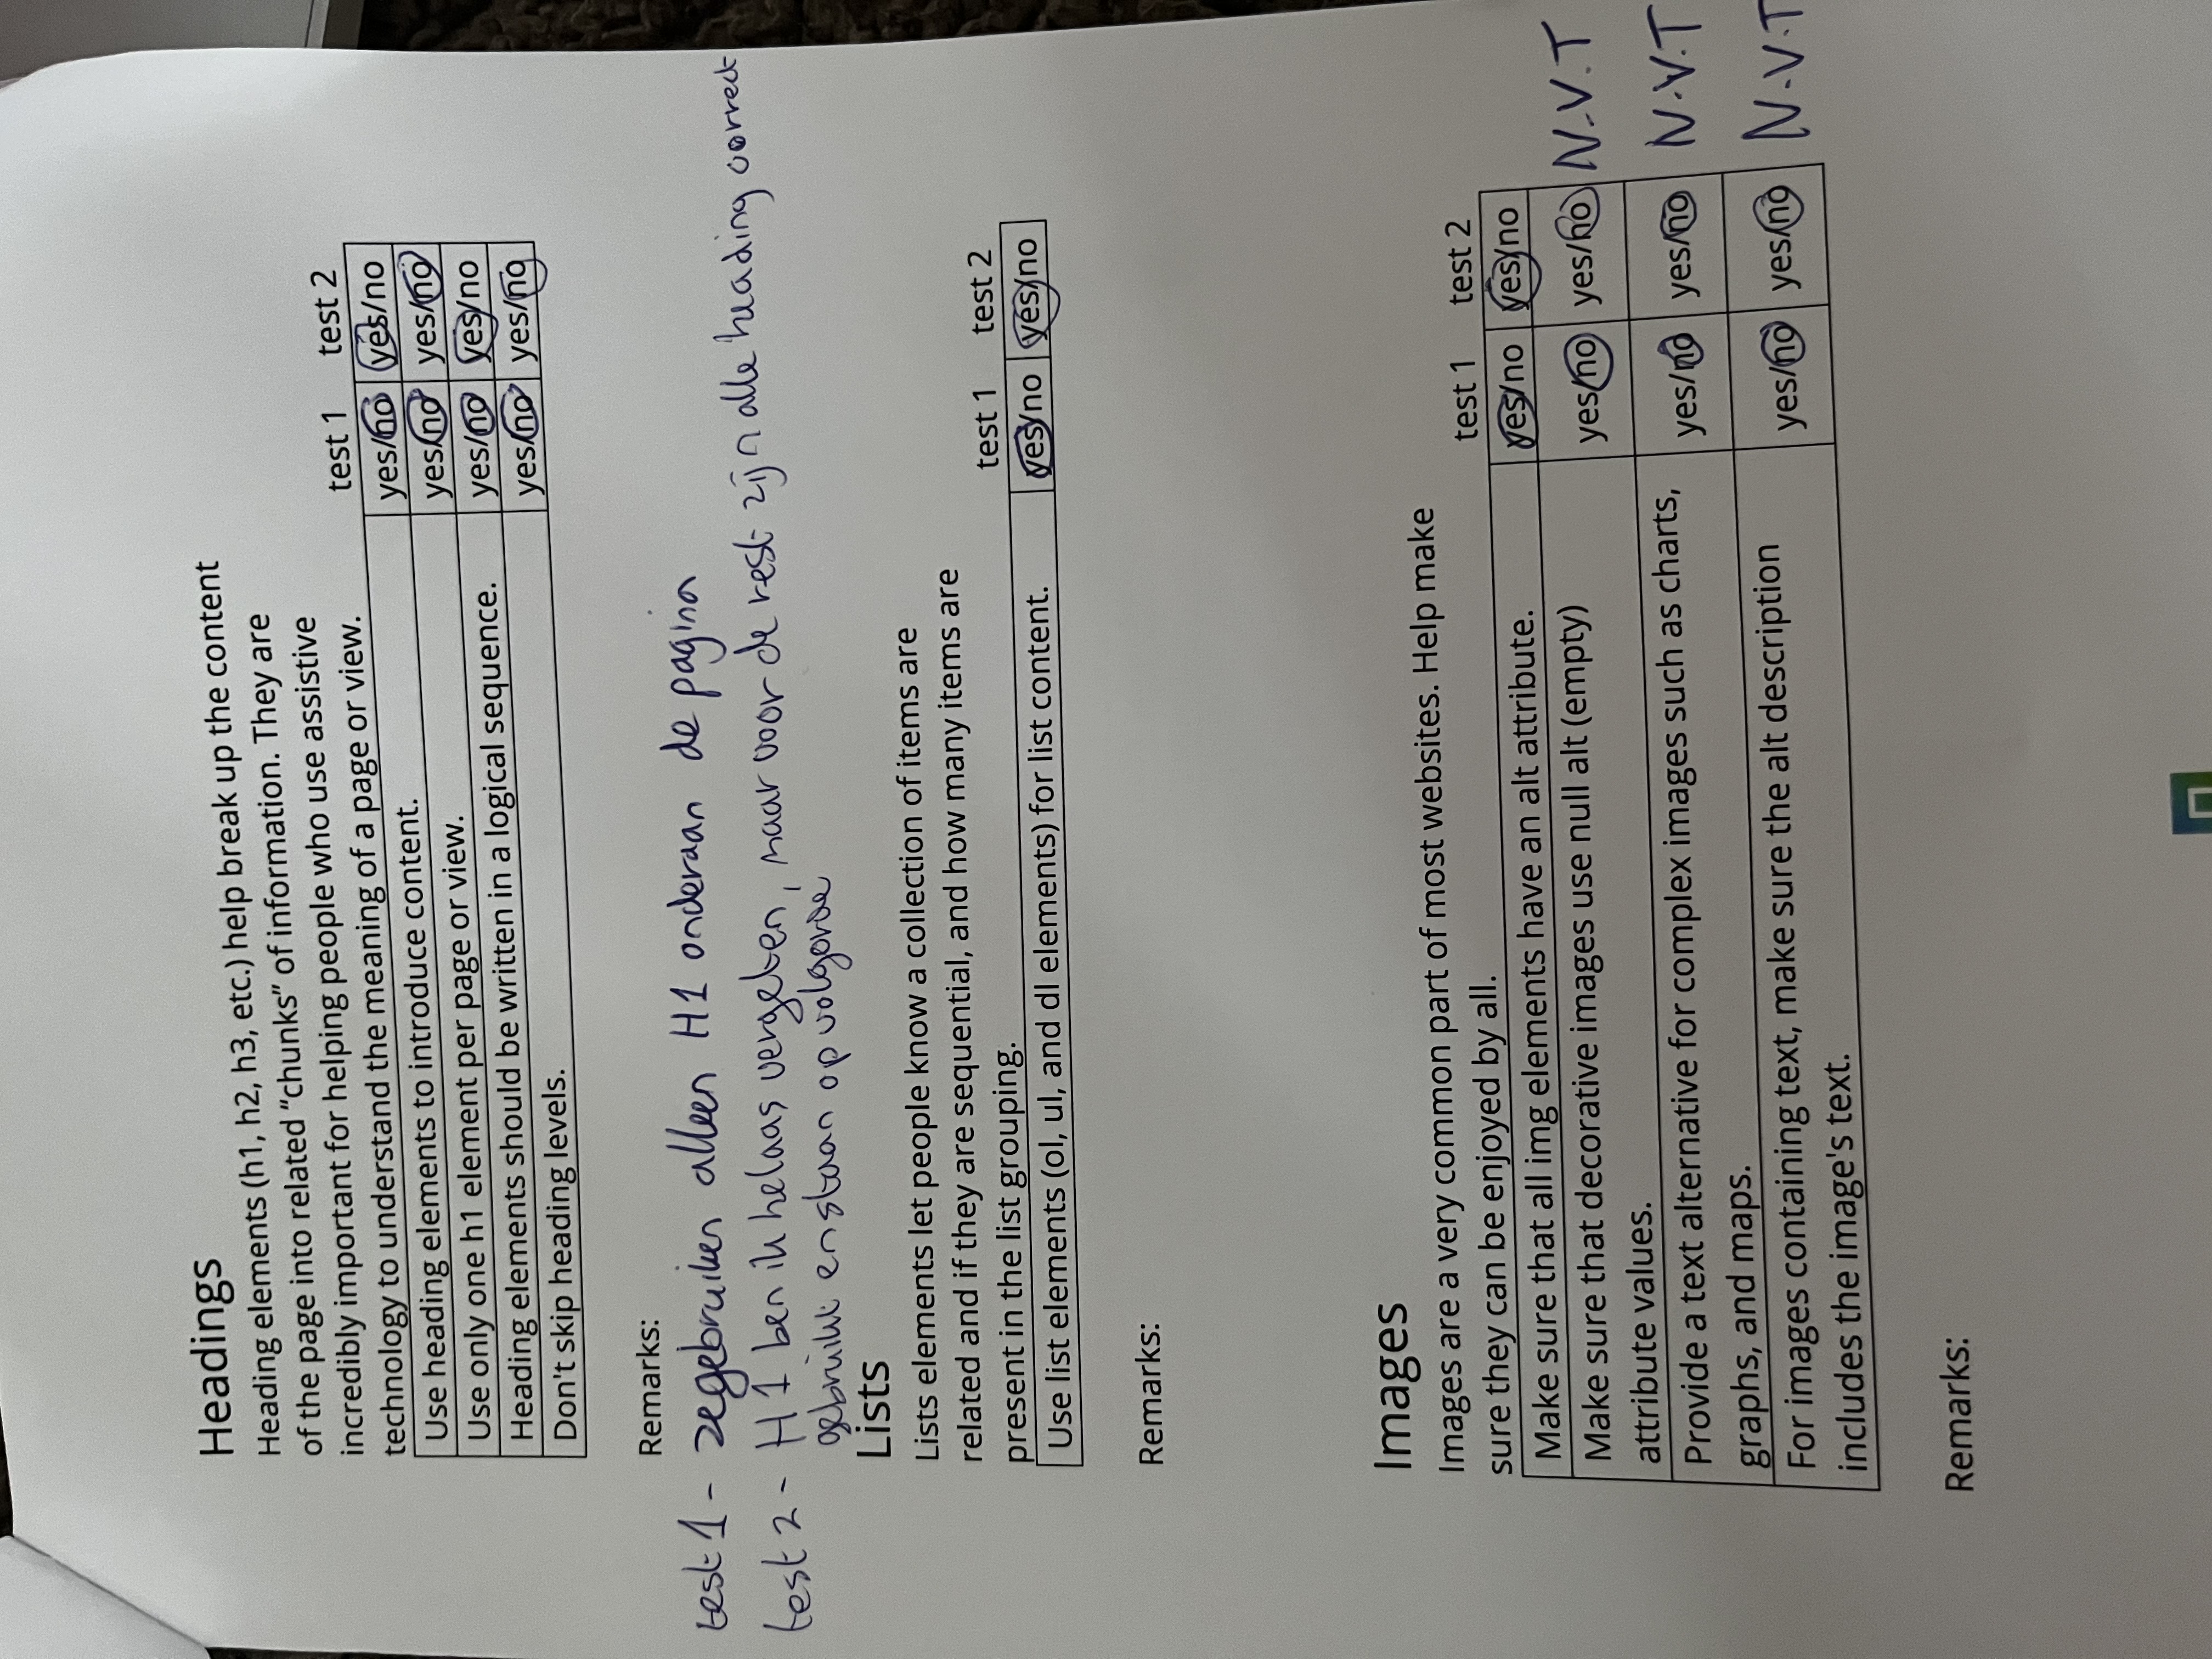 Headings
Heading elements (h1, h2, h3, etc.) help break up the content
of the page into related “chunks” of information. They are
incredibly important for helping people who use assistive
technology to understand the meaning of a page or view.
test 1 test 2
Use heading elements to introduce content. yes/no yes/no
Use only one h1 element per page or view. yes/no yes/no
Heading elements should be written in a logical sequence. yes/no yes/no
Don't skip heading levels. yes/no yes/no
Remarks:
test 1 - ze gebruiken alleen H1 onderaan de pagina
test 2 - H1 ben ik helaas vergeten, maar voor de rest zijn alle heading correct
gebruikt en staan op volgorde
Lists
Lists elements let people know a collection of items are
related and if they are sequential, and how many items are
present in the list grouping.
test 1 test 2
Use list elements (ol, ul, and dl elements) for list content. yes/no yes/no
Remarks:
Images
Images are a very common part of most websites. Help make
sure they can be enjoyed by all.
test 1 test 2
Make sure that all img elements have an alt attribute. yes/no yes/no
Make sure that decorative images use null alt (empty) yes/no yes/no N.V.T
attribute values.
Provide a text alternative for complex images such as charts, yes/no yes/no N.V.T
graphs, and maps.
For images containing text, make sure the alt description yes/no yes/no N.V.T
includes the image's text.
Remarks: